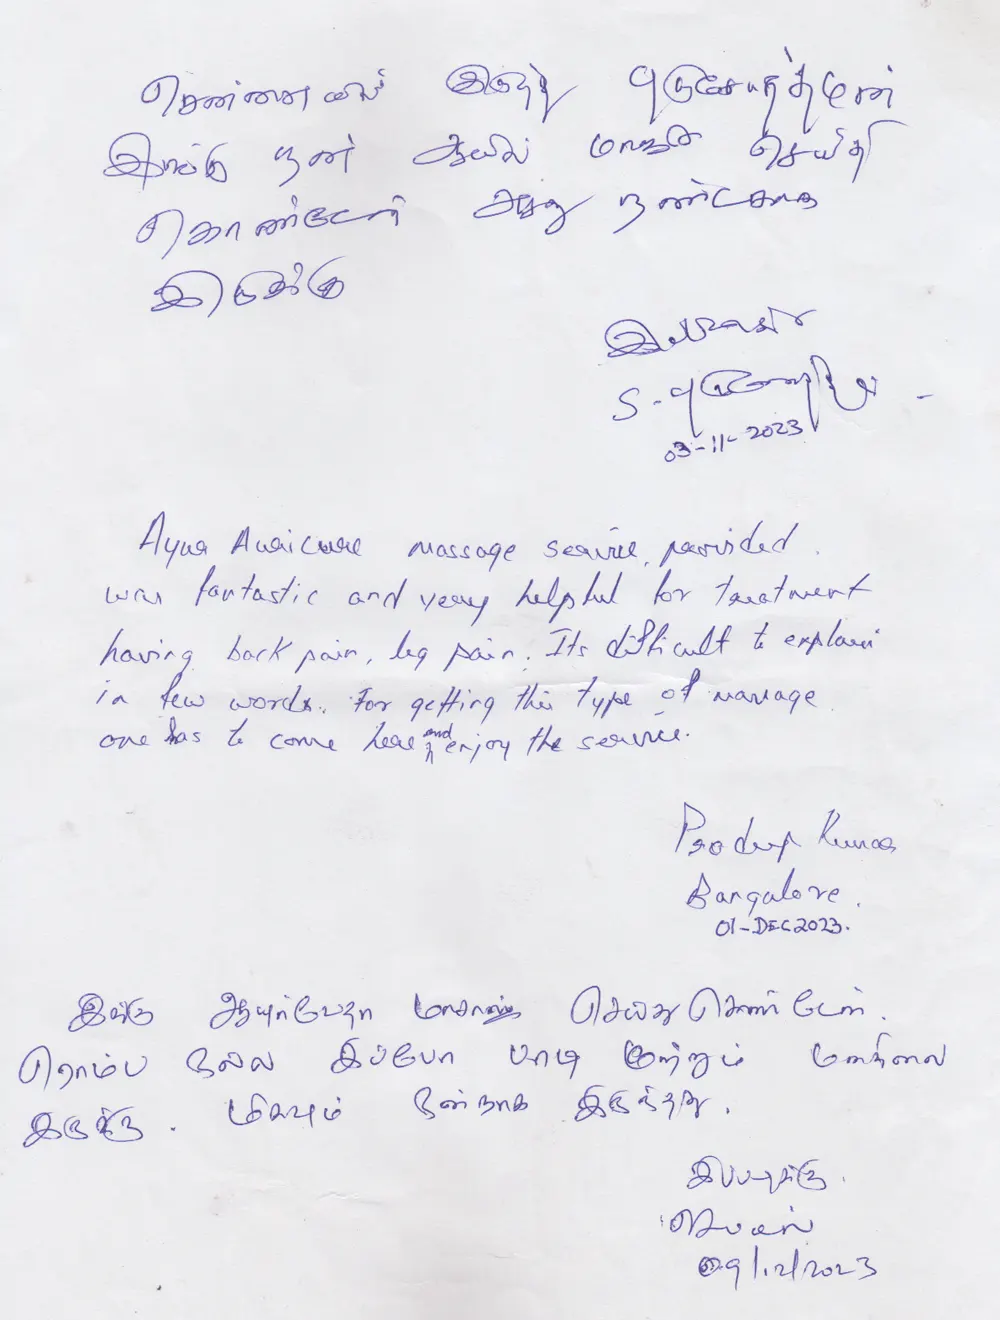 சென்னையில் இருந்து புருசோத்தமன்
இங்கு நன் ஆயில் மாதஜ் செயிதி
கொண்டேன் அது நண்டகாக
இருக்கு
இப்படிக்கு
S. புருஷோத்
03-11-2023
Ayur massage service, provided.
was fantastic and very helpful for treatment
having back pain, leg pain. Its difficult to explain
in few words. For getting this type of massage
one has to come here and enjoy the service.
Pradeep Kumar
Bangalore.
01-DEC2023.
இங்கு ஆயுர்வேதா மாசாஜ் செய்து கொண்டேன்.
ரொம்ப நல்ல இப்போ பாடி மற்றும் மனநிலை
இருக்கு. மிகவும் நன்றாக இருந்தது.
இப்படிக்கு.
09/12/2023